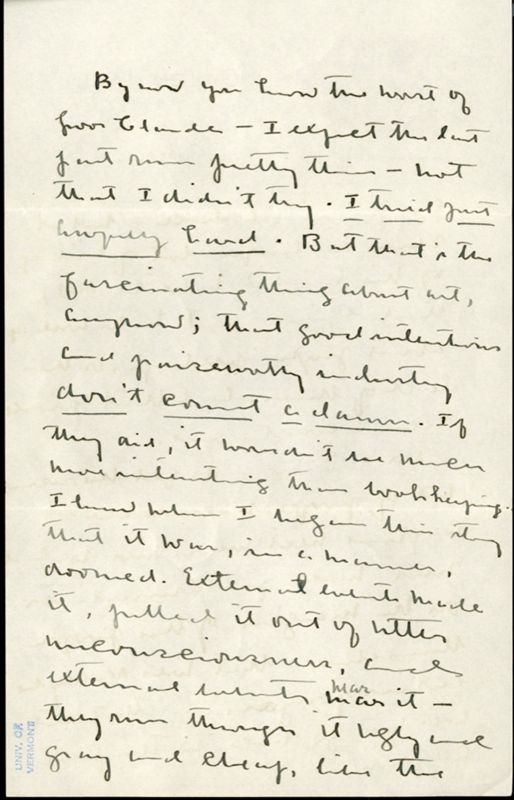 By now you know the worst of
poor Claude — I expect the last
part runs pretty thin — not
that I didn't try. I tried just
awfully hard. But that's the
fascinating thing about art,
anyhow; that good intentions
and praiseworthy industry
don't count a damn. If
they did, it wouldn't be much
more interesting than bookkeeping.
I knew when I began this story
that it was, in a manner,
doomed. External events made
it, pulled it out of utter
unconsciousness, and
external events mar it —
mar
they run through it ugly and
gray and cheap, like the
UNIV. OF
VERMONT